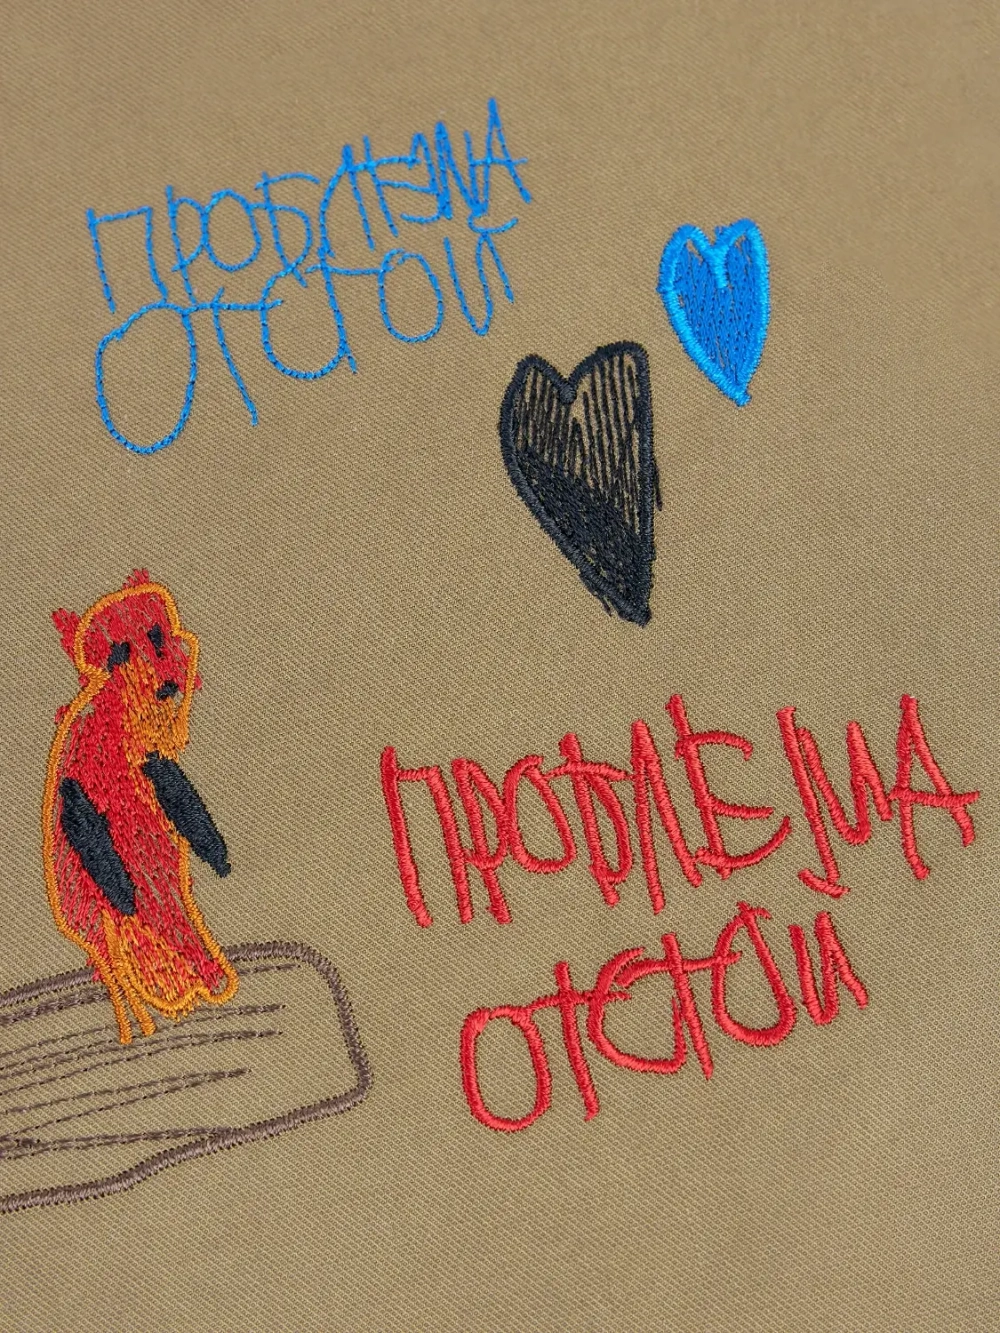 ПРОБЛЕМА
ОТСТОЙ
ПРОБЛЕМА
ОТСТОЙ